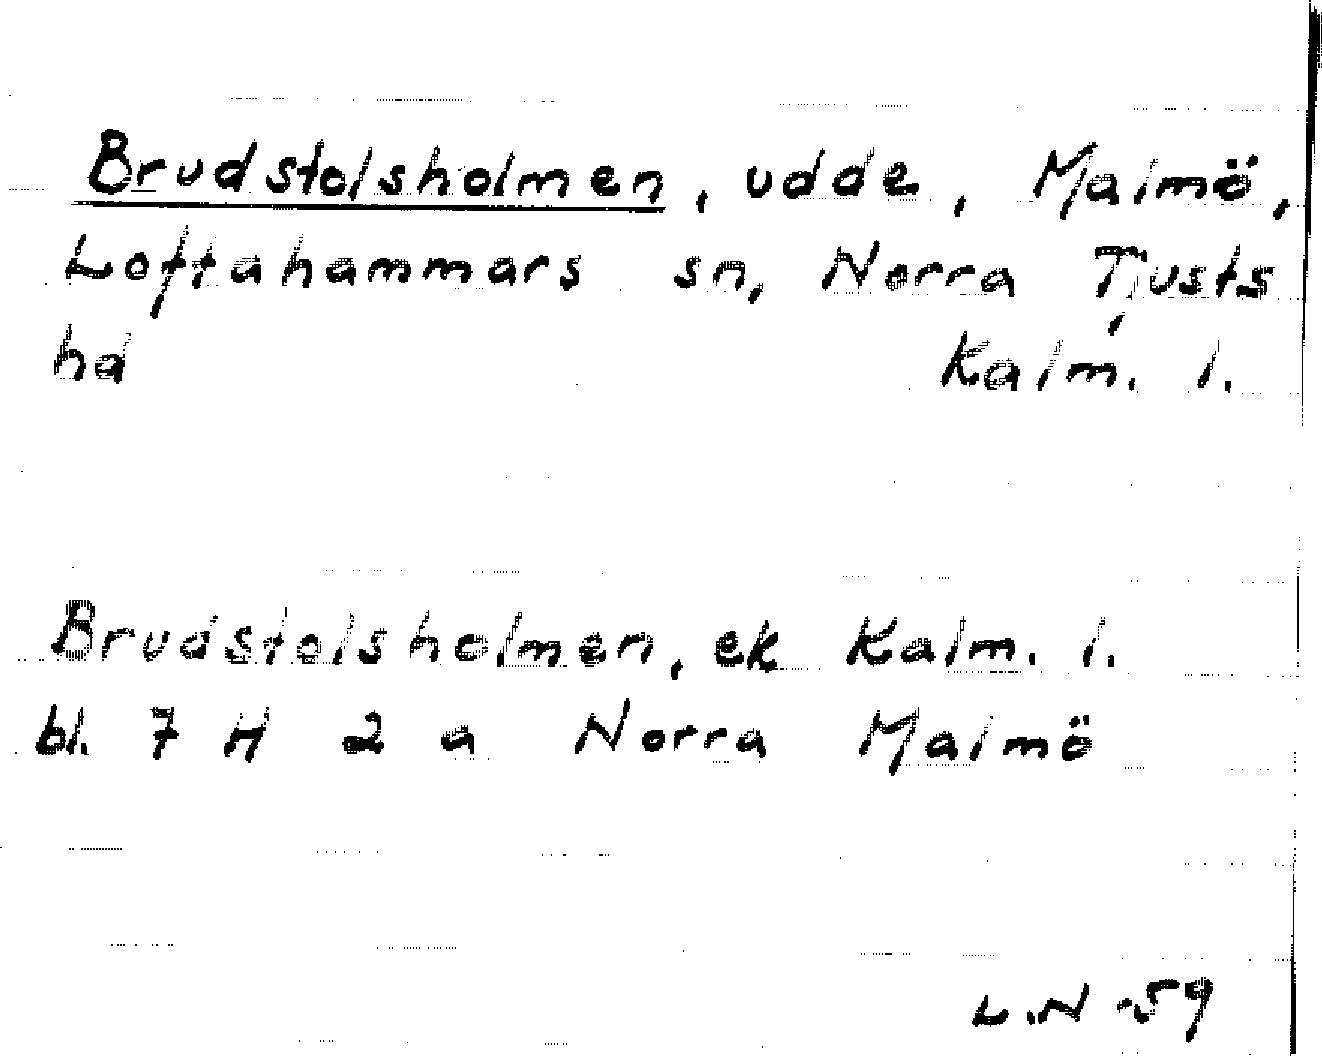 Brudstolsholmen, udde, Malmö,
Loftahammars sn, Norra Tjusts
hd Kalm. l.
Brudstolsholmen, ek Kalm. l.
bl. 7 H 2 a Norra Malmö
L.N -59